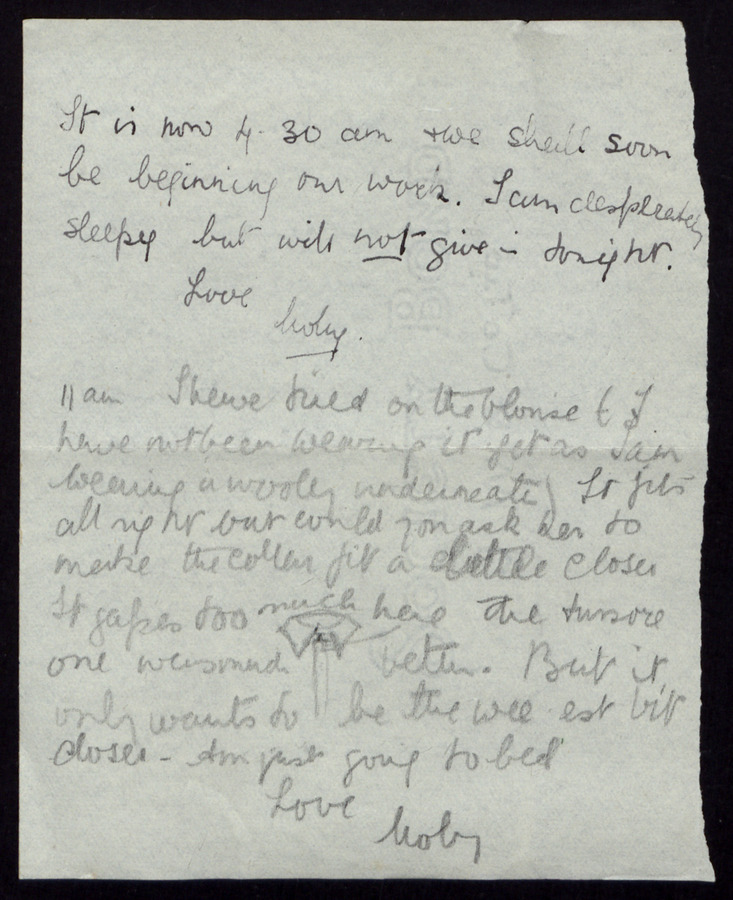 It is now 4.30 am & we shall soon
be beginning our work. I am despleately
sleepy but will not give in tonight.
Love
Moby.
11 am I have tried on the blouse (I
have not been wearing it yet as I am
wearing a wooley underneath) It fits
all right but could you ask her to
make the collar fit a little closer
It gapes too much here the tussore
one was much better. But it
only wants to be the wee est bit
closer - Am just going to bed
Love
Moby